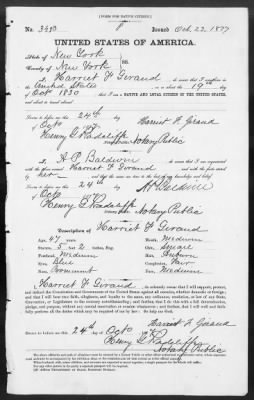 [FORM FOR NATIVE CITIZEN.]
No. 3493 Issued Oct. 23, 1877
UNITED STATES OF AMERICA.
State of New York
County of New York
I, Harriet F Giraud, do swear that I was born in
the United States on or about the 19th day
of Oct 1830; that I am a NATIVE AND LOYAL CITIZEN OF THE UNITED STATES,
and about to travel abroad.
Sworn to before me this 24th day
of Octo 1877
Harriet F. Giraud
Notary Public
I, A P Baldwin, do swear that I am acquainted
with the above named Harriet F Giraud and with the facts
stated by her and that the same are true to the best of my knowledge and belief.
Sworn to before me this 24th day
of Octo
Notary Public
Description of Harriet F Giraud
Age, 47 years Mouth, Medium
Stature, 5 ft 2 inches, Eng. Chin, Square
Forehead, Medium Hair, Auburn
Eyes, Blue Complexion, Fair
Nose, Prominent Face, Medium
I, Harriet F Giraud, do solemnly swear that I will support, protect,
and defend the Constitution and Government of the United States against all enemies, whether domestic or foreign;
and that I will bear true faith, allegiance, and loyalty to the same, any ordinance, resolution, or law of any State,
Convention, or Legislature to the contrary notwithstanding; and further, that I do this with a full determination,
pledge, and purpose, without any mental reservation or evasion whatsoever; and further, that I will well and faithfully
perform all the duties which may be required of me by law: So help me God.
Harriet F. Giraud
Sworn to before me this 24th day of Octo
Notary Public